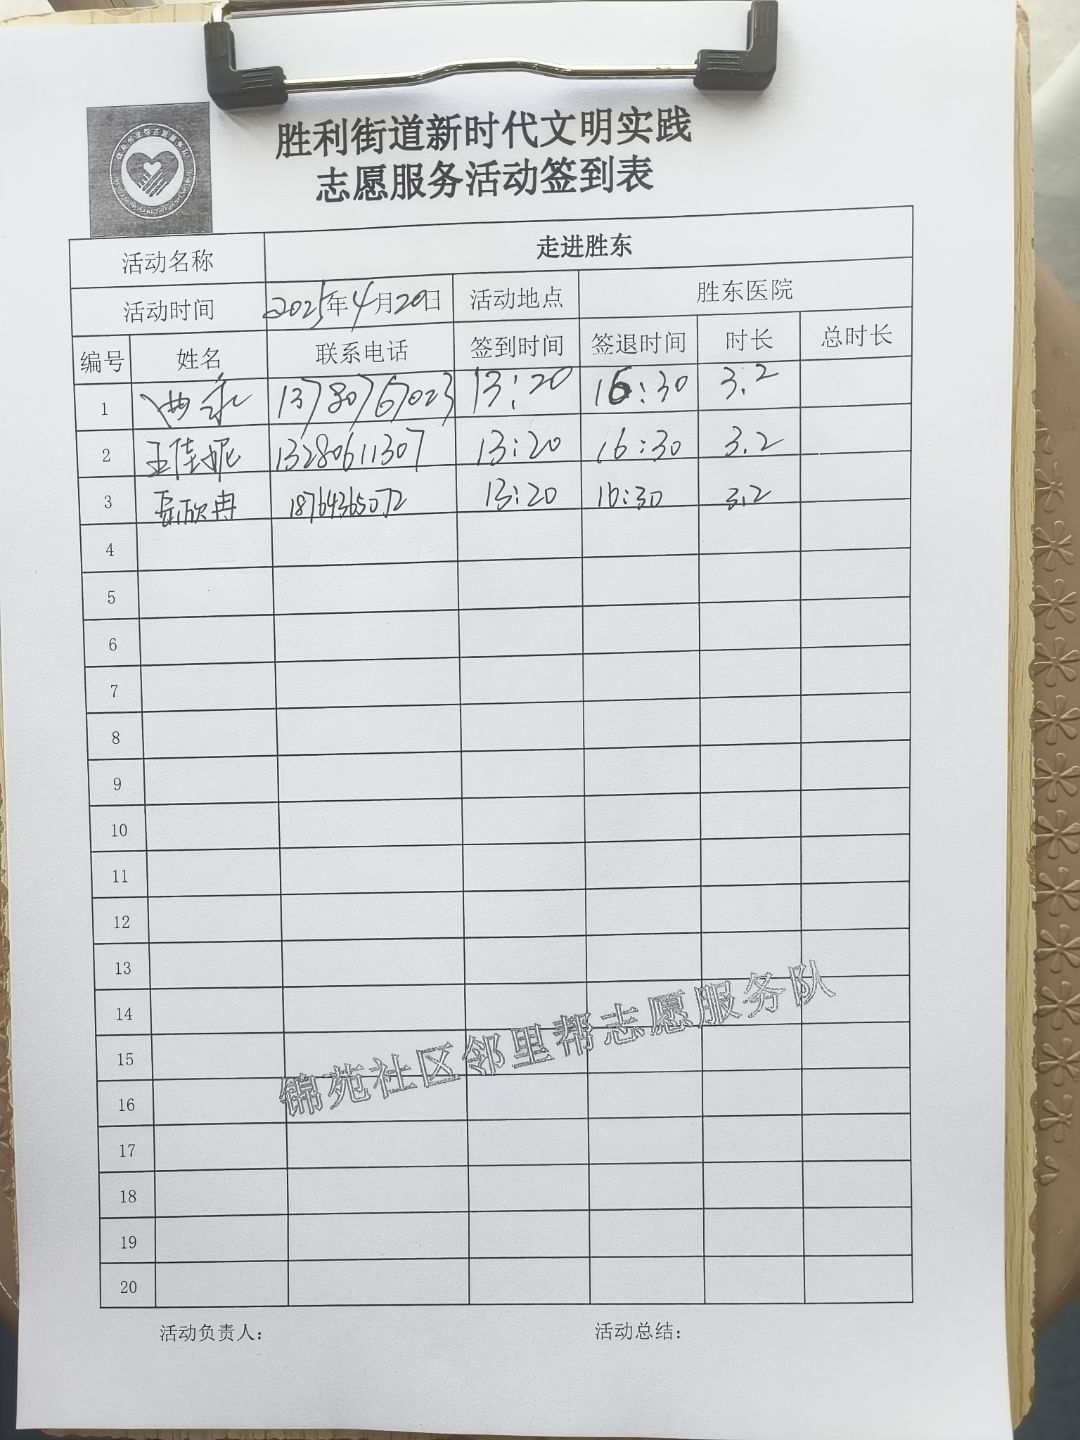 胜利街道新时代文明实践
志愿服务活动签到表
活动名称 走进胜东
活动时间 2025年4月20日 活动地点 胜东医院
编号 姓名 联系电话 签到时间 签退时间 时长 总时长
1 13780767023 13:20 16:30 3.2
2 王佳妮 13280611307 13:20 16:30 3.2
3 欣冉 18764365072 13:20 16:30 3.2
4
5
6
7
8
9
10
11
12
13
14
15
16
17
18
19
20
锦苑社区邻里帮志愿服务队
活动负责人: 活动总结: